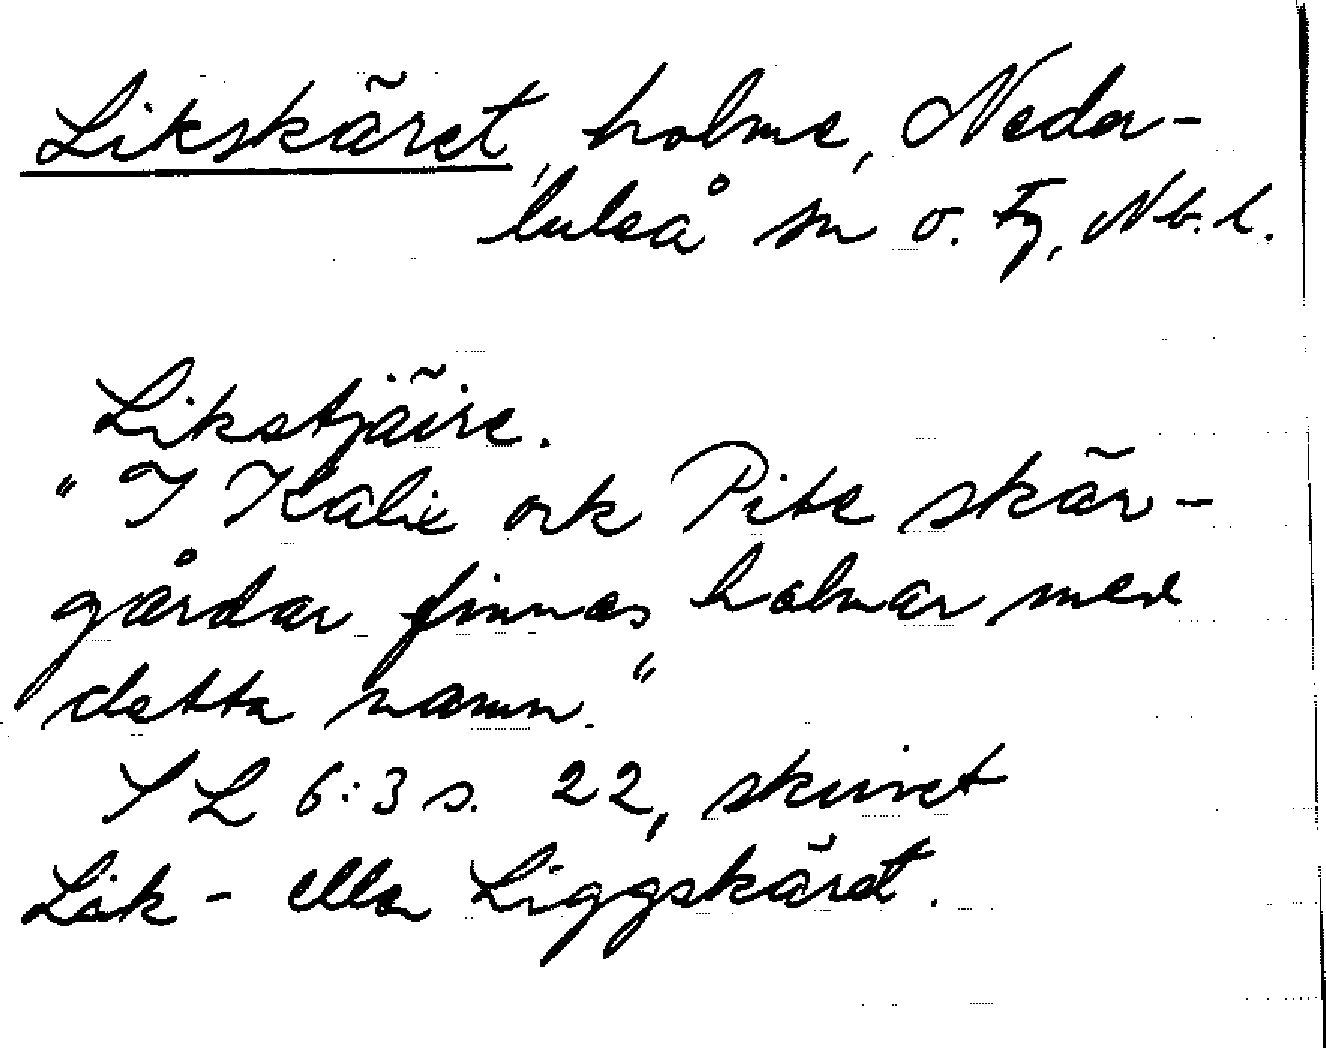 Likskäret, holme, Neder-
luleå sn o. Tg, Nb. l.
Likstjäire.
"I Kalix ock Pite skär-
gårdar finnas holmar med
detta namn."
SL 6:3 s. 22, skrivet
Lik- eller Liggskäret.